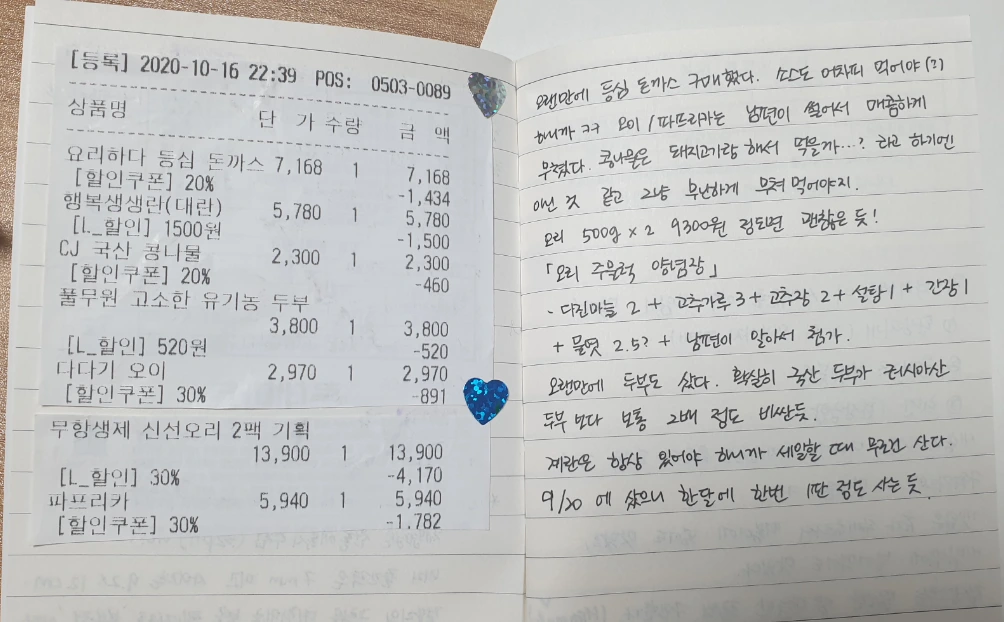 [등록] 2020-10-16 22:39 POS: 0503-0089
상품명
단 가 수량 금 액
요리하다 등심 돈까스 7,168 1 7,168
[할인쿠폰] 20% -1,434
행복생생란(대란) 5,780 1 5,780
[L_할인] 1500원 -1,500
CJ 국산 콩나물 2,300 1 2,300
[할인쿠폰] 20% -460
풀무원 고소한 유기농 두부
3,800 1 3,800
[L_할인] 520원 -520
다다기 오이 2,970 1 2,970
[할인쿠폰] 30% -891
무항생제 신선오리 2팩 기획
13,900 1 13,900
[L_할인] 30% -4,170
파프리카 5,940 1 5,940
[할인쿠폰] 30% -1,782
오랜만에 등심 돈까스 구매했다. 소스도 어차피 먹어야(?)
하니까 ㅋㅋ 오이/파프리카는 남편이 썰어서 매콤하게
무쳤다. 콩나물은 돼지고기랑 해서 먹을까...? 라고 하기엔
아닌 것 같고 그냥 무난하게 무쳐 먹어야지.
오리 500g x 2 9300원 정도면 괜찮은 듯!
「오리 주물럭 양념장」
- 다진마늘 2 + 고추가루 3 + 고추장 2 + 설탕 1 + 간장 1
+ 물엿 2.5? + 남편이 알아서 첨가.
오랜만에 두부도 샀다. 확실히 국산 두부가 러시아산
두부 보다 보통 2배 정도 비싼듯.
계란은 항상 있어야 하니까 세일할 때 무조건 산다.
9/20 에 샀으니 한달에 한번 1판 정도 사는 듯.